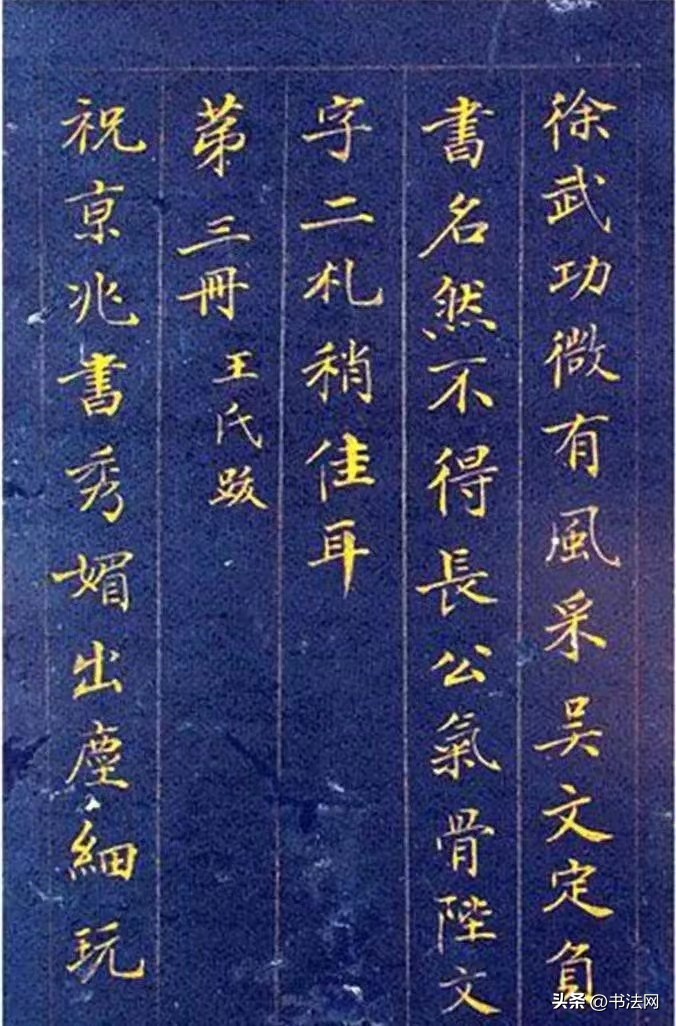 徐武功微有風采吴文定負
書名然不得長公氣骨陛文
字二札稍佳耳
第三冊 王氏跋
祝京兆書秀媚出塵細玩
头条 @书法网